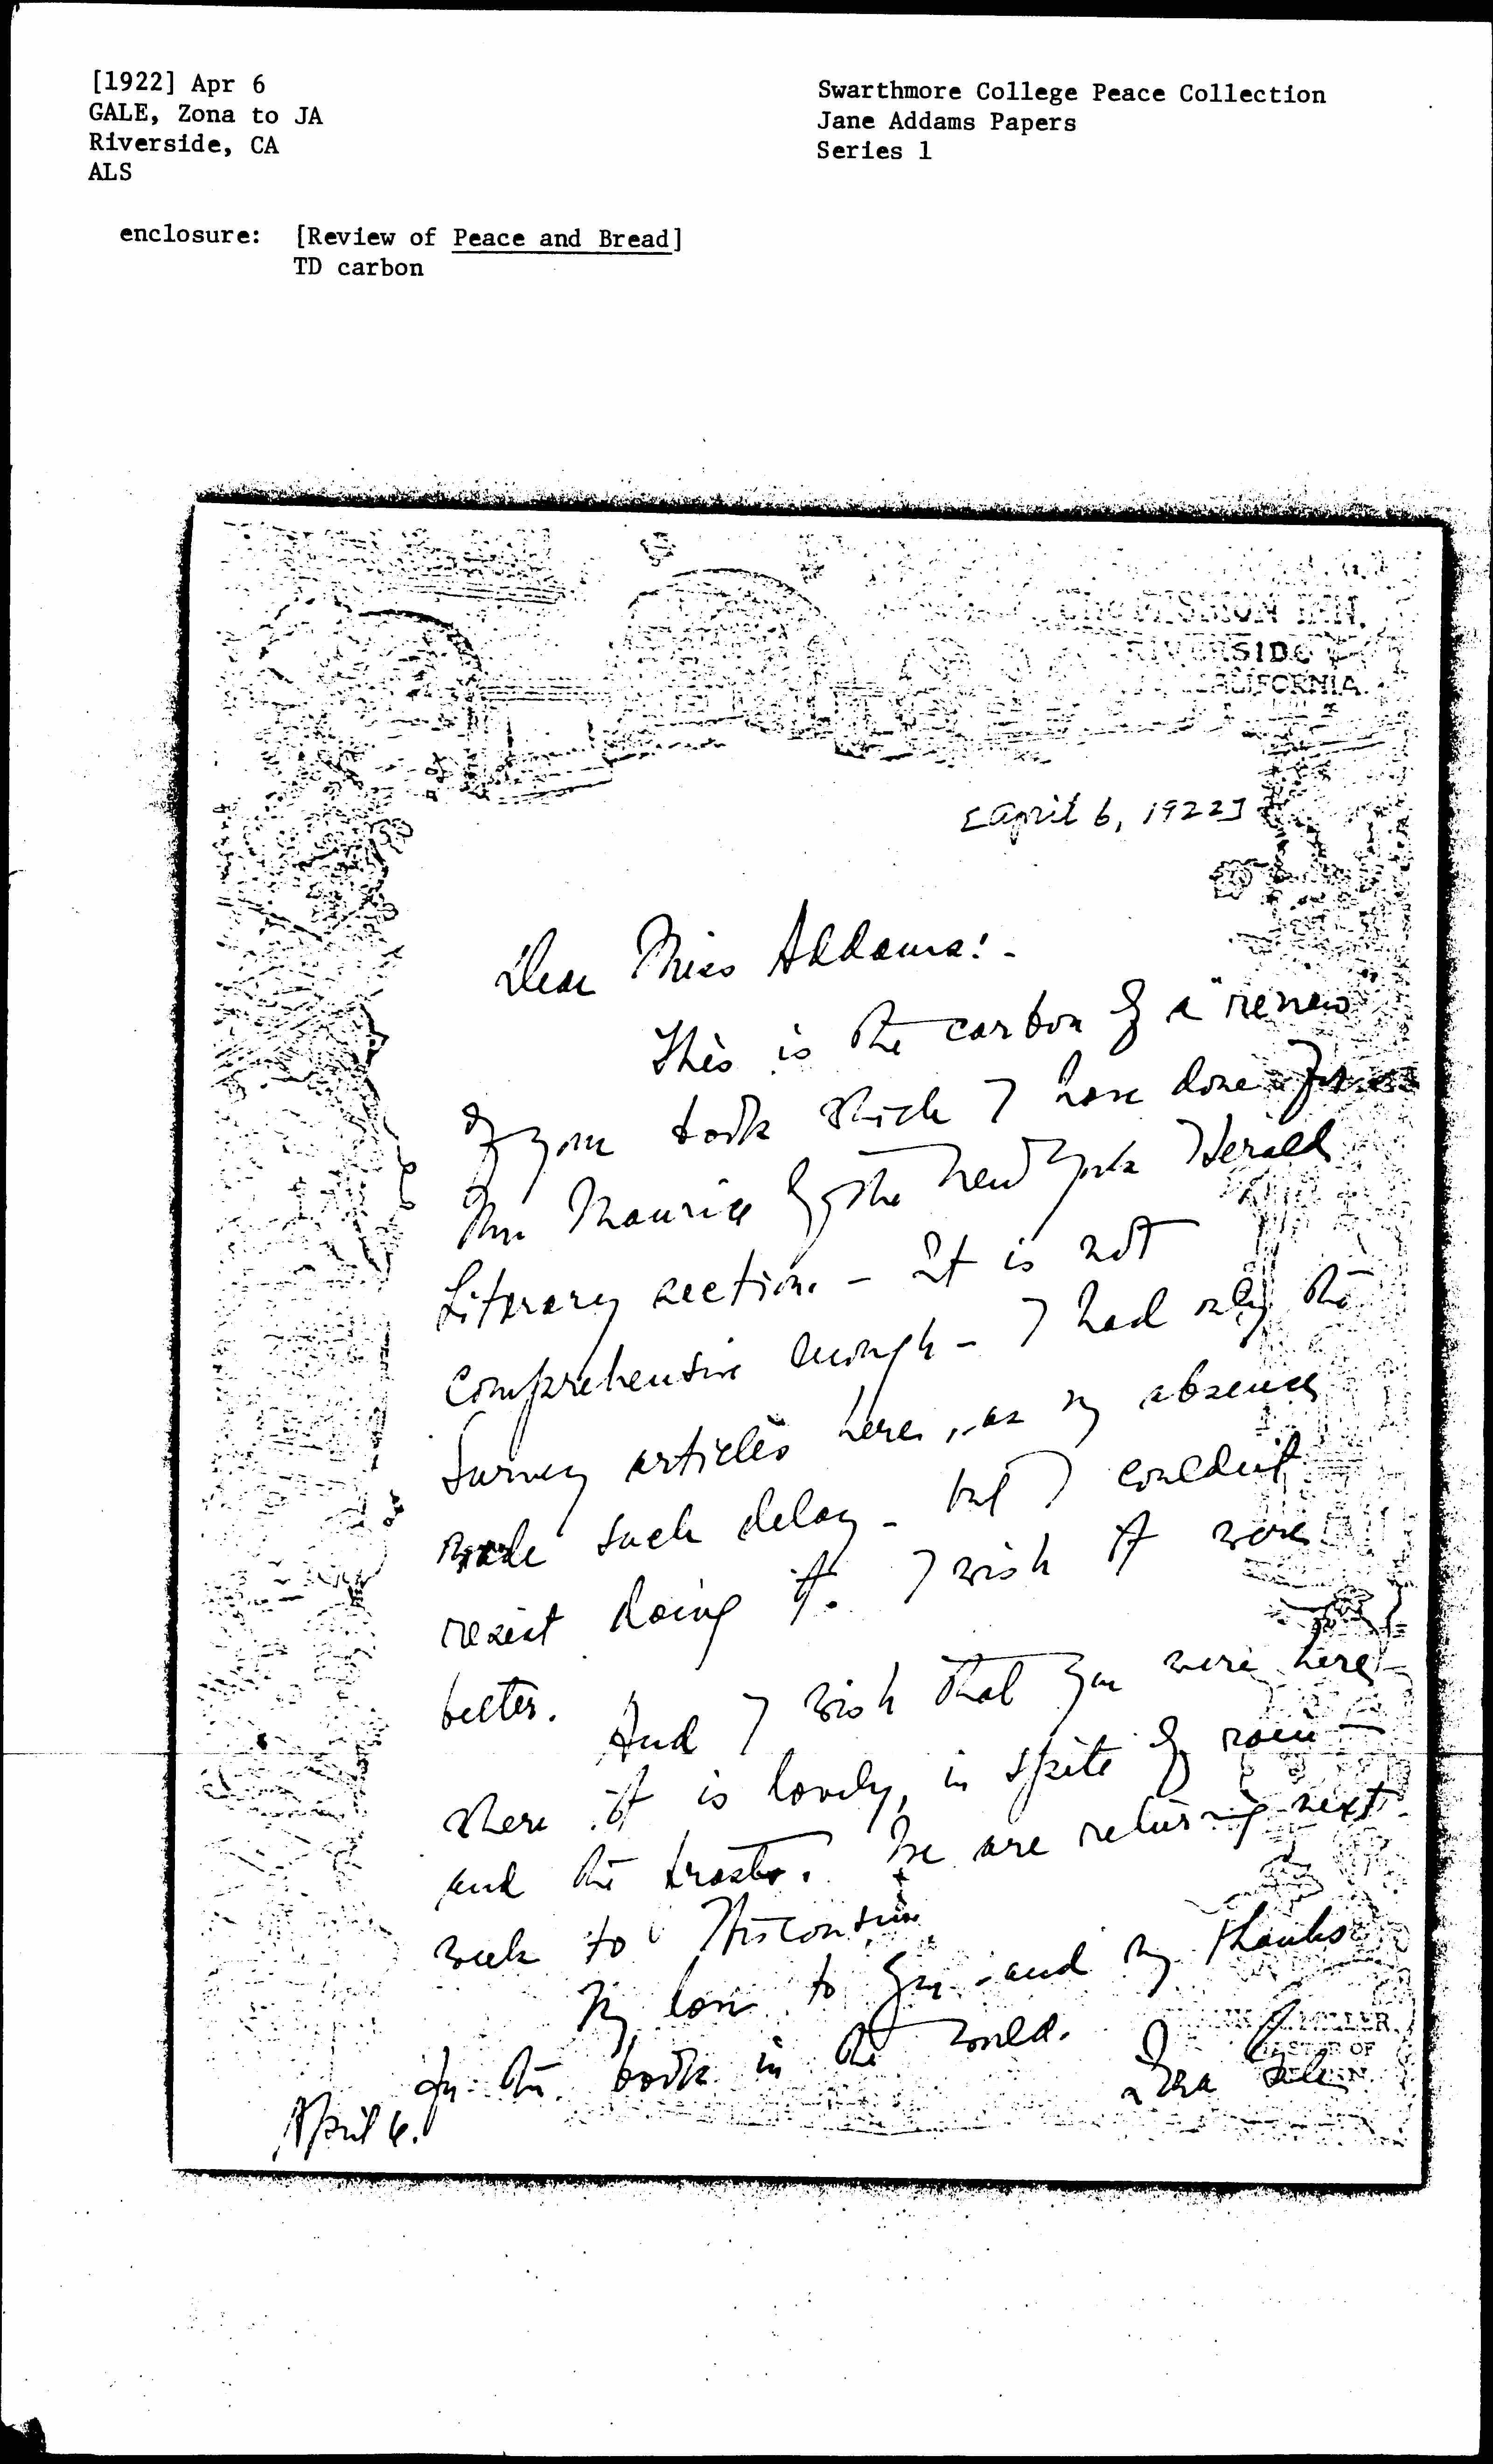 [1922] Apr 6
GALE, Zona to JA
Riverside, CA
ALS
enclosure: [Review of Peace and Bread]
TD carbon
Swarthmore College Peace Collection
Jane Addams Papers
Series 1
MISSION INN.
RIVERSIDE
CALIFORNIA.
[April 6, 1922]
Dear Miss Addams:-
This is the carbon of a "review"
of your book which I have done for
Mr. Maurice of the New York Herald
Literary section. - It is not
comprehensive enough - I had only the
Survey articles here, as my absence
made such delay - but I couldn't
resist doing it. I wish it were
better.
And I wish that you were here -
where it is lovely, in spite of rain
and the frosts. We are returning next
week to Wisconsin.
My love to you - and my thanks
for this book in the world.
Zona Gale
April 6.
MILLER
MASTER OF